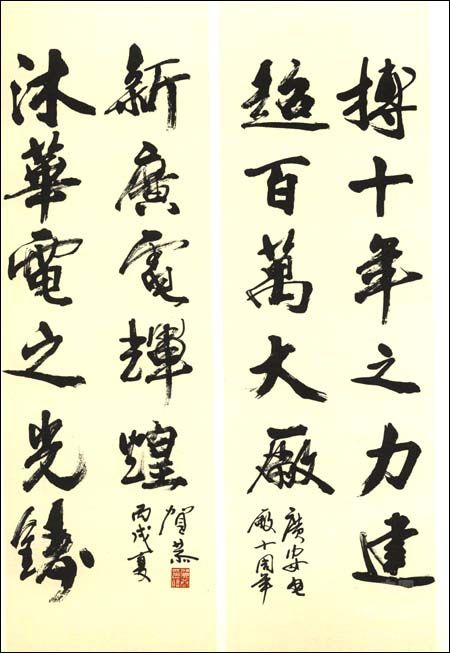 搏十年之力建
超百萬大厰
廣安电
厰十周年
沐華電之光鑄
新廣電輝煌
賀
丙戌夏